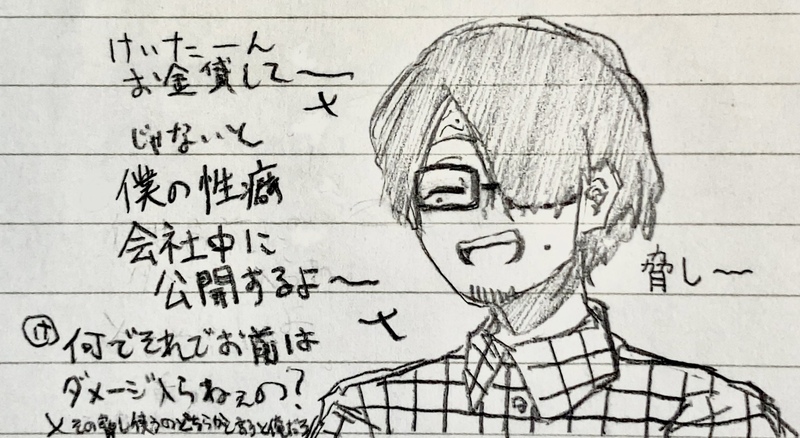 けいたーん
お金貸して〜
メ
じゃないと
僕の性癖
会社中に
公開するよ〜
メ
脅し〜
け 何でそれでお前は
ダメージ入らねぇの?
メ その脅し使うのどちらかと言うと俺だろ